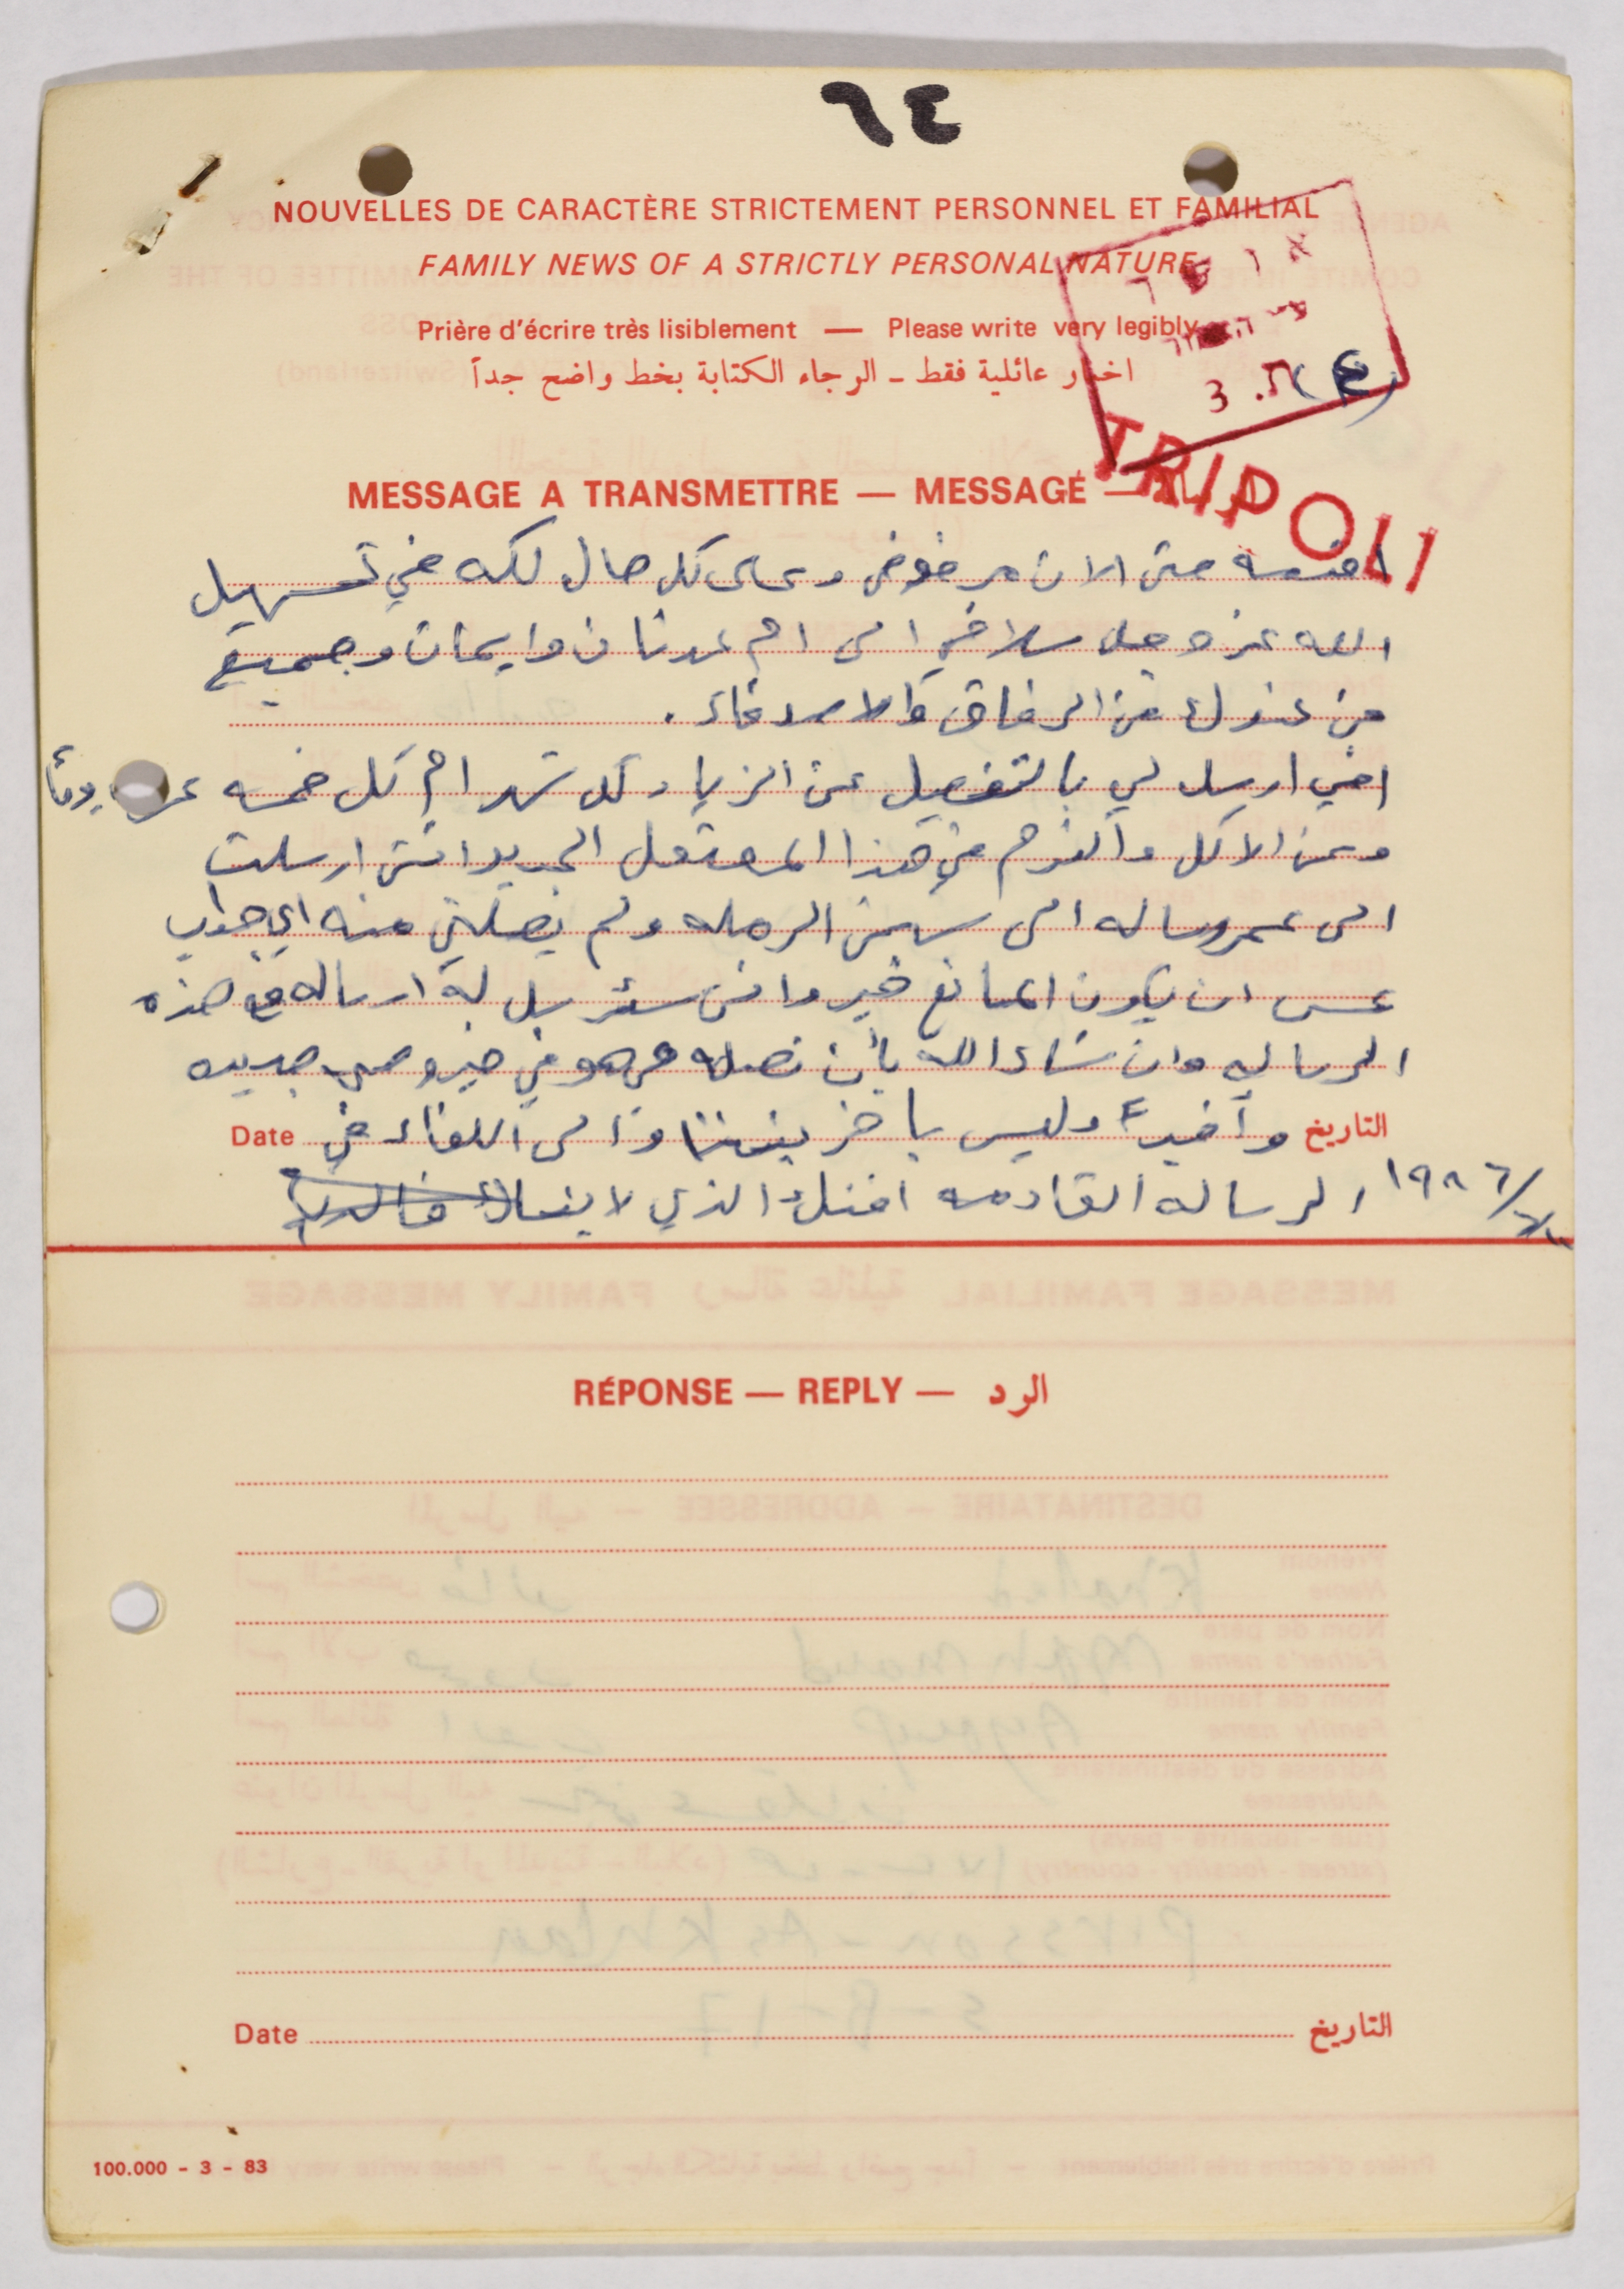 ٦٤
NOUVELLES DE CARACTÈRE STRICTEMENT PERSONNEL ET FAMILIAL
FAMILY NEWS OF A STRICTLY PERSONAL NATURE
Prière d'écrire très lisiblement — Please write very legibly
اخبار عائلية فقط ـ الرجاء الكتابة بخط واضح جداً
(٤)
TRIPOLI
MESSAGE A TRANSMETTRE — MESSAGE —
حتى الان مرفوض وعلى كل حال لكه في تسهيل
الله عز وجل سلامي الى ام عدنان وايمان وجميع
من عندك من الرفاق والاصدقاء .
اخي ارسل لي بالتفصيل عن الزيارة كل شهر ام كل خمسه يوماً
وعن الاكل والنوم في هذا المعتقل الجديد انني ارسلت
الى عمر رساله الى سجن الرمله ولم يصلني منه اي جواب
عسى ان يكون المانع خير وانني سئرسل له ارساله مع هذه
الرساله وان شاء الله بأن تصله وهو في خير وصحه جيده
التاريخ وأخيراً وليس باخر بيننا والى اللقاء في Date
١٩٨٦/ الرساله القادمه اخوك الذي لا ينساك
RÉPONSE — REPLY — الرد
Date التاريخ
100.000 - 3 - 83